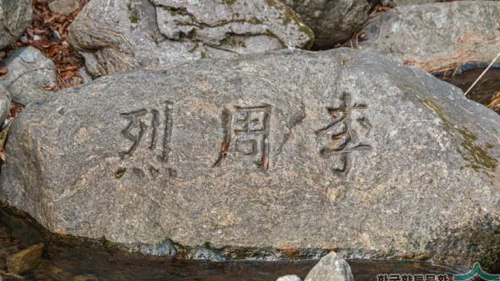 李周烈